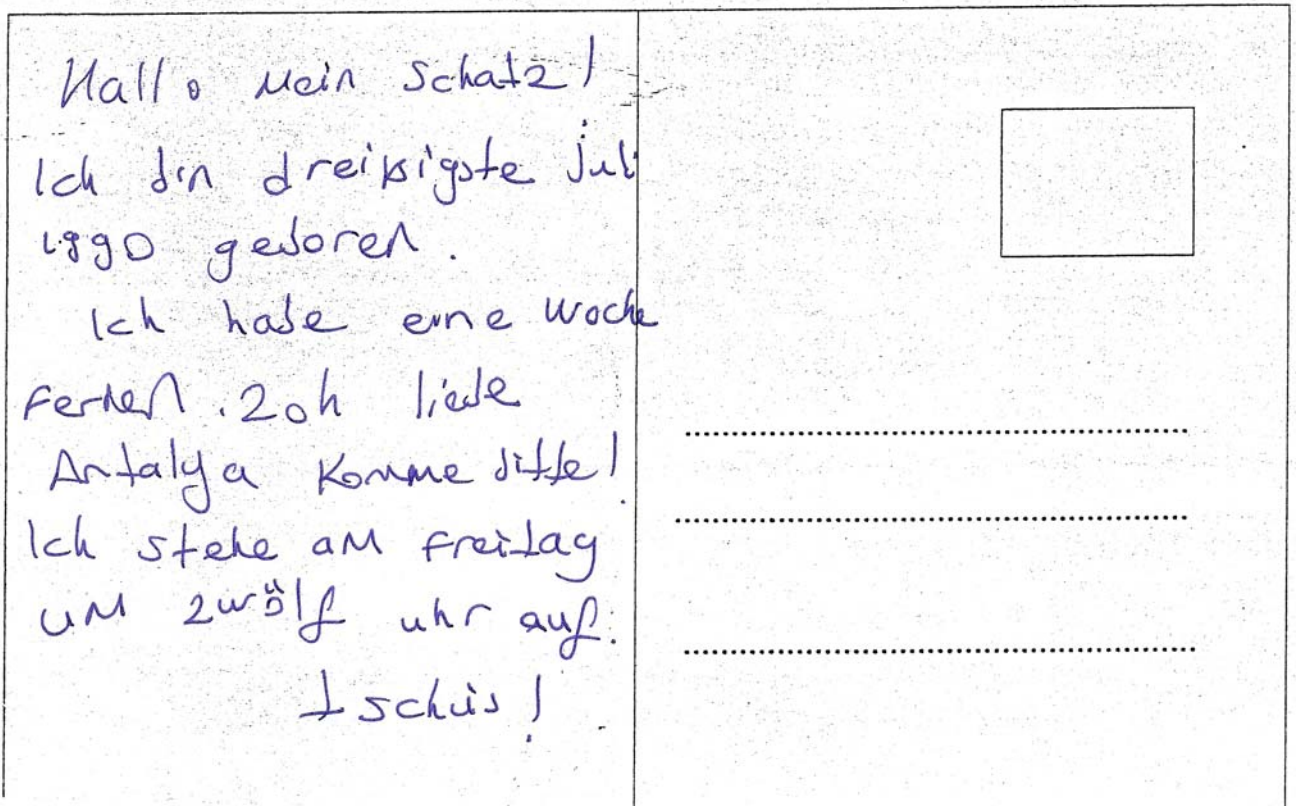 Hallo Mein Schatz!
Ich bin dreißigste juli
1990 geboren.
Ich habe eine Woche
Ferien. Ich liebe
Antalya Komme bitte!
Ich stehe am Freitag
um zwölf uhr auf.
Tschüs!